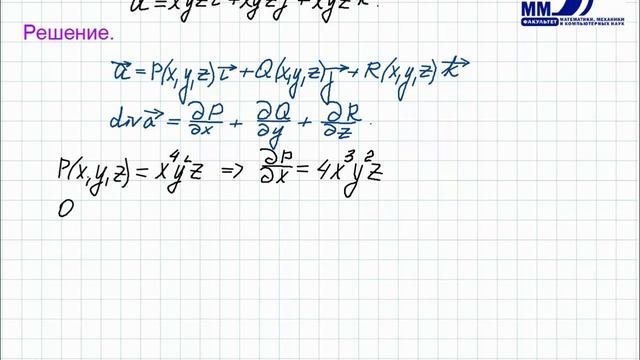 ММ
ФАКУЛЬТЕТ
МАТЕМАТИКИ, МЕХАНИКИ
И КОМПЬЮТЕРНЫХ НАУК
Решение.
a⃗ = P(x,y,z)i⃗ + Q(x,y,z)j⃗ + R(x,y,z)k⃗
div a⃗ = ∂P/∂x + ∂Q/∂y + ∂R/∂z.
P(x,y,z) = x⁴y²z ⇒ ∂P/∂x = 4x³y²z